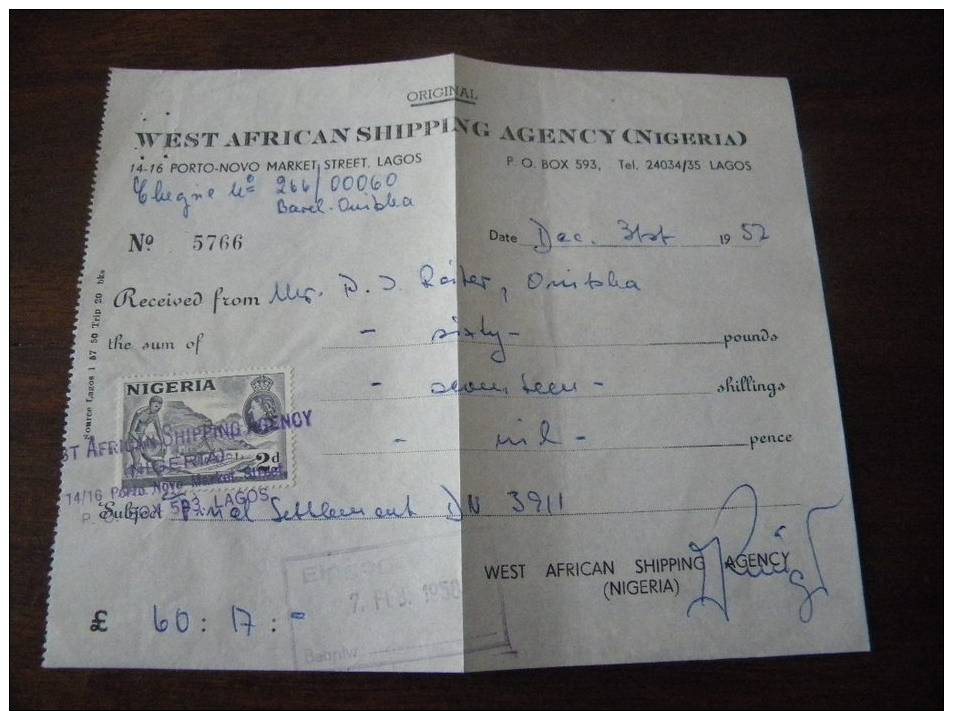 ORIGINAL
WEST AFRICAN SHIPPING AGENCY (NIGERIA)
14-16 PORTO-NOVO MARKET STREET, LAGOS
P. O. BOX 593, Tel. 24034/35 LAGOS
Cheque No 266/00060
Barcl. Onitsha
No 5766
Date Dec. 31st 1957
Received from Mr. D. J Reiter, Onitsha
the sum of - sixty - pounds
- seventeen - shillings
- nil - pence
Source Lagos 1 57 50 Trip 20 bks
NIGERIA
2d
ST AFRICAN SHIPPING AGENCY
(NIGERIA)
14/16 Porto Novo Market Street,
P. O. BOX 593, LAGOS
Subject Final Settlement DN 3911
WEST AFRICAN SHIPPING AGENCY
(NIGERIA)
7. FEB. 1958
£ 60 : 17 : -